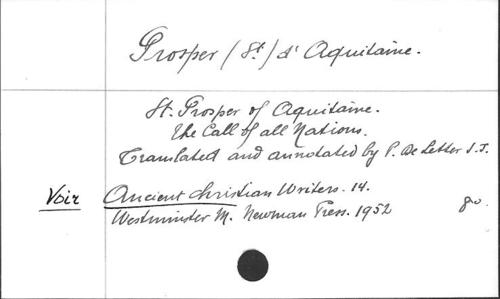 Prosper (St.) d' Aquitaine.
St. Prosper of Aquitaine.
The Call of all Nations.
Translated and annotated by P. De Letter S.J.
Voir Ancient Christian Writers. 14.
Westminster M. Newman Press. 1952 8o.